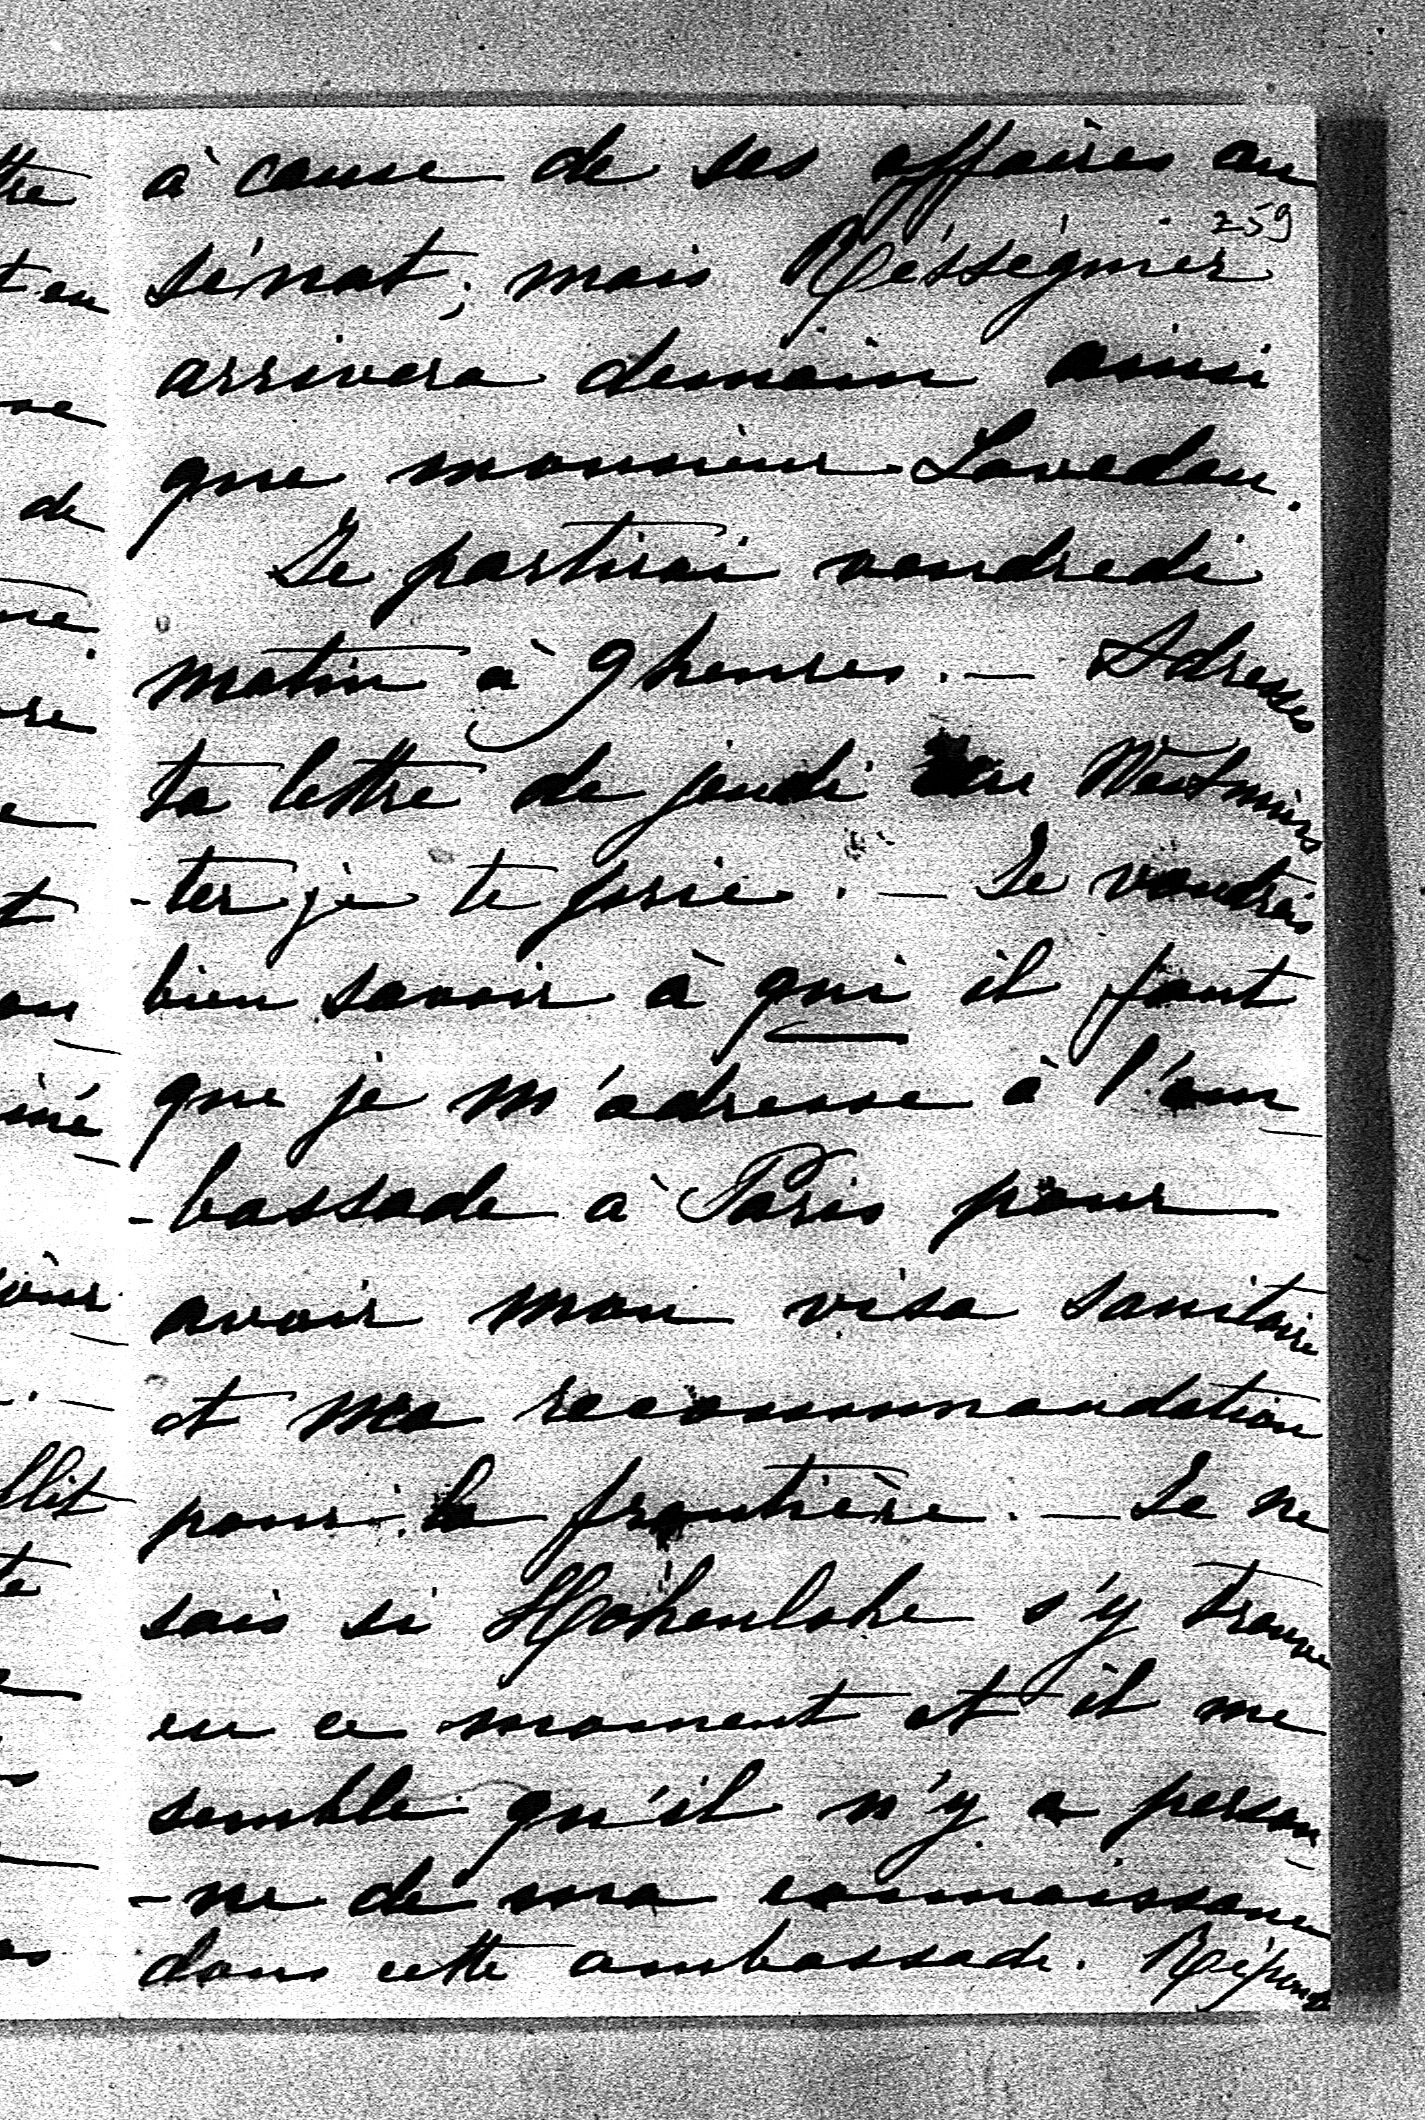 à cause de ses affaires au
259
sénat; mais Rességuier
arrivera demain ainsi
que monsieur Lavedan.
Je partirai vendredi
matin à 9 heures. — Adresses
ta lettre de jeudi au Westmins
-ter je te prie. — Je voudrais
bien savoir à qui il faut
que je m'adresse à l'am
-bassade à Paris pour
avoir mon visa sanitaire
et ma recommandation
pour la frontière. — Je ne
sais si Hohenlohe s'y trouve
en ce moment et il me
semble qu'il n'y a person
-ne de ma connaissance
dans cette ambassade. Réponds